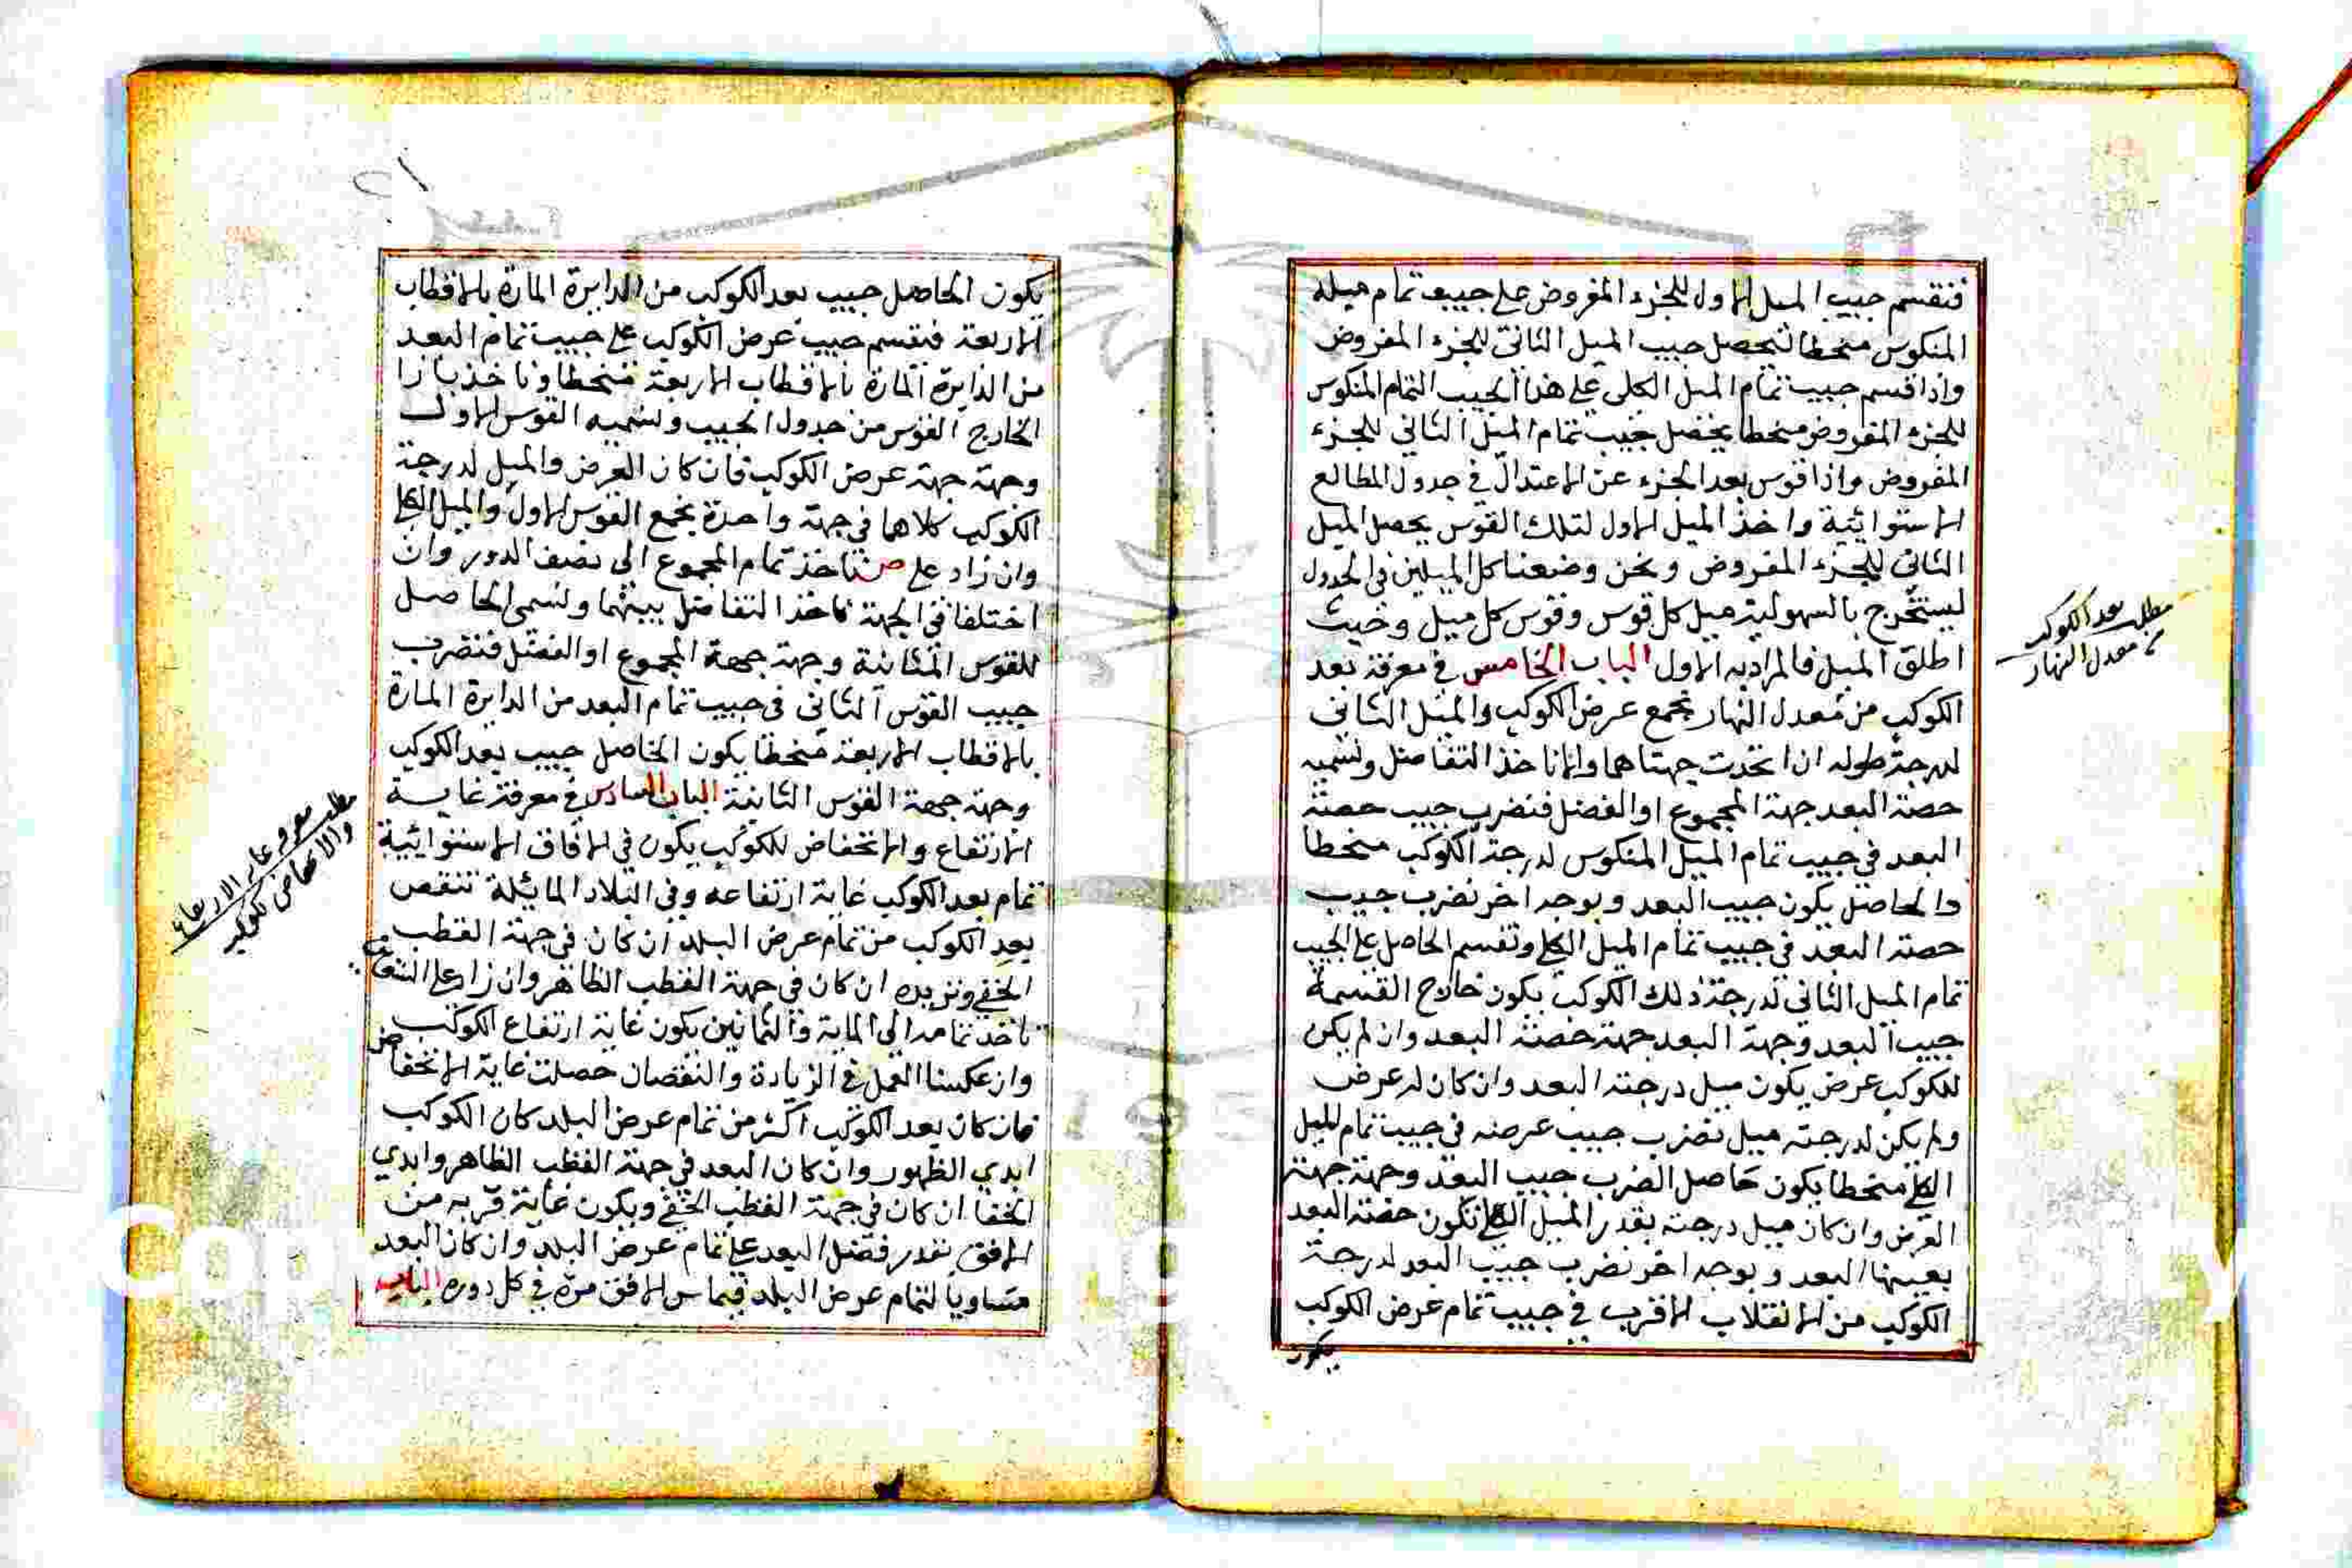 فنقسم جيب الميل الاول للجزء المفروض على جيب تمام ميله
المنكوس منحطا ليحصل جيب الميل الثاني للجزء المفروض
واذا قسم جيب تمام الميل الكلي على هذا الجيب التمام المنكوس
للجزء المفروض منحطا يحصل جيب تمام الميل الثاني للجزء
المفروض واذا قوس بعد الجزء عن الاعتدال في جدول المطالع
الاستوائية واخذ الميل الاول لتلك القوس يحصل الميل
الثاني للجزء المفروض ونحن وضعنا كل الميلين في الجدول
ليستخرج بالسهولية ميل كل قوس وقوس كل ميل وحيث
اطلق الميل فالمراد به الاول الباب الخامس في معرفة بعد
الكوكب من معدل النهار نجمع عرض الكوكب والميل الثاني
لدرجة طوله ان اتحدت جهتاهما والا ناخذ التفاضل ونسميه
حصة البعد جهة المجموع او الفضل فنضرب جيب حصة
البعد في جيب تمام الميل المنكوس لدرجة الكوكب منحطا
فالحاصل يكون جيب البعد وبوجه اخر نضرب جيب
حصة البعد في جيب تمام الميل الكلي ونقسم الحاصل على الجيب
تمام الميل الثاني لدرجة ذلك الكوكب يكون خارج القسمة
جيب البعد وجهة البعد جهة حصة البعد وان لم يكن
للكوكب عرض يكون ميل درجته البعد وان كان له عرض
ولم يكن لدرجته ميل نضرب جيب عرضه في جيب تمام الميل
الكلي منحطا يكون حاصل الضرب جيب البعد وجهته جهة
العرض وان كان ميل درجته بقدر الميل الكلي تكون حصة البعد
بعينها البعد وبوجه اخر نضرب جيب البعد لدرجة
الكوكب من الانقلاب الاقرب في جيب تمام عرض الكوكب
يكون
مطلب بعد الكوكب
من معدل النهار
يكون الحاصل جيب بعد الكوكب من الدايرة المارة بالاقطاب
الاربعة فنقسم جيب عرض الكوكب على جيب تمام البعد
من الدايرة المارة بالاقطاب الاربعة منحطا وناخذ بازا
الخارج القوس من جدول الجيب ونسميه القوس الاول
وجهته جهة عرض الكوكب فان كان العرض والميل لدرجة
الكوكب كلاهما في جهة واحدة نجمع القوس الاول والميل الكلي
وان زاد على ص ناخذ تمام المجموع الى نصف الدور وان
اختلفا في الجهة ناخذ التفاضل بينهما ونسمي الحاصل
للقوس الثانية وجهته جهة المجموع او الفضل فنضرب
جيب القوس الثاني في جيب تمام البعد من الدايرة المارة
بالاقطاب الاربعة منحطا يكون الحاصل جيب بعد الكوكب
وجهته جهة القوس الثانية الباب السادس في معرفة غاية
الارتفاع والانخفاض للكوكب يكون في الافاق الاستوائية
تمام بعد الكوكب غاية ارتفاعه وفي البلاد المائلة ننقص
بعد الكوكب من تمام عرض البلد ان كان في جهة القطب
الخفي ونزيده ان كان في جهة القطب الظاهر وان زاد على
ناخذ تمامه الى الماية والثمانين يكون غاية ارتفاع الكوكب
وان عكسنا العمل في الزيادة والنقصان حصلت غاية الانخفاض
فان كان بعد الكوكب اكثر من تمام عرض البلد كان الكوكب
ابدي الظهور وان كان البعد في جهة القطب الظاهر وابدي
الخفا ان كان في جهة القطب الخفي ويكون غاية قربه من
الافق بقدر فضل البعد على تمام عرض البلد وان كان البعد
مساويا لتمام عرض البلد فيماس الافق مرة في كل دوره الباب
مطلب معرفة غاية الارتفاع
والانخفاض للكوكب